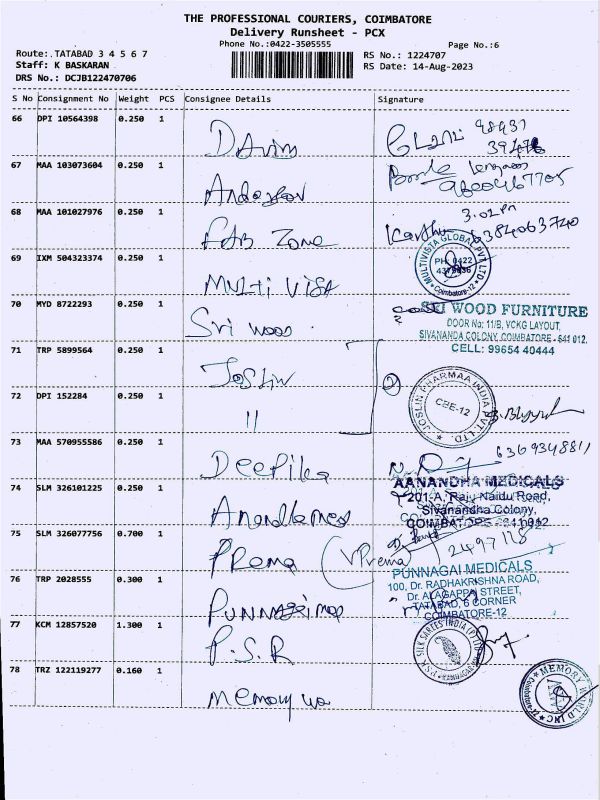 THE PROFESSIONAL COURIERS, COIMBATORE
Delivery Runsheet - PCX
Phone No.:0422-3505555
Page No.:6
Route: TATABAD 3 4 5 6 7
Staff: K BASKARAN
DRS No.: DCJB122470706
RS No.: 1224707
RS Date: 14-Aug-2023
S No Consignment No Weight PCS Consignee Details Signature
66 DPI 10564398 0.250 1
67 MAA 103073604 0.250 1
9800467705
68 MAA 101027976 0.250 1 FAB Zone
3.02 pm
Karthi 6384063740
69 IXM 504323374 0.250 1 Multi Visa
MULTIVISTA GLOBAL PVT LTD
PH: 0422
Coimbatore-12
70 MYD 8722293 0.250 1 Sri woos
SRI WOOD FURNITURE
DOOR No: 11/B, VCKG LAYOUT,
SIVANANDA COLONY, COIMBATORE - 641 012.
CELL: 99654 40444
71 TRP 5899564 0.250 1 Joslin
72 DPI 152284 0.250 1 11
2
JOSLIN PHARMAA INDIA PVT. LTD.
CBE-12
73 MAA 570955586 0.250 1 Deepika
6369348811
74 SLM 326101225 0.250 1
AANANDHA MEDICALS
201-A, Raju Naidu Road,
Sivanandha Colony,
COIMBATORE - 641 012
75 SLM 326077756 0.700 1 Prema (V Prema)
2497118
76 TRP 2028555 0.300 1
PUNNAGAI MEDICALS
100, Dr. RADHAKRISHNA ROAD,
Dr. ALAGAPPA STREET,
TATABAD, 6 CORNER
COIMBATORE-12
77 KCM 12857520 1.300 1 P.S.R
P.S.R SILK SAREES INDIA (P) LTD
78 TRZ 122119277 0.160 1
MEMORY WORLD INC
Coimbatore-12